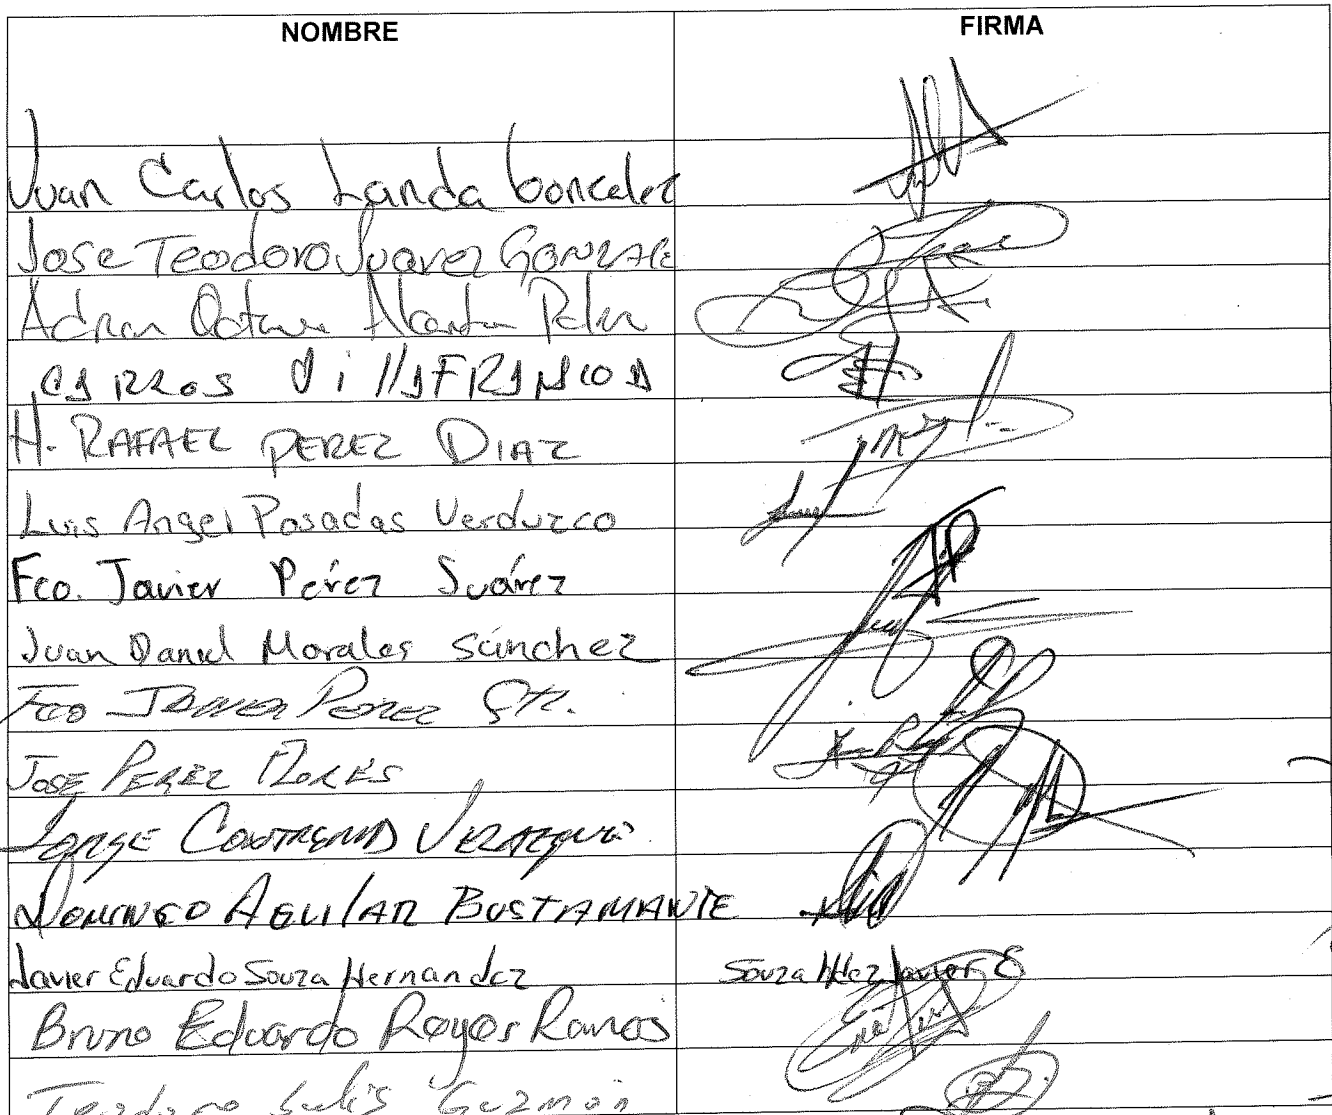 NOMBRE FIRMA
Juan Carlos Landa Goncalez
Jose Teodoro Juarez GONZALE
Adrian Octavio
CARLOS VillAFRANCO
H. RAFAEL PEREZ DIAZ
Luis Angel Posadas Verduzco
Fco. Javier Peréz Suárez
Juan Daniel Morales Sánchez
Fco JAVIER PEREZ
JOSE PEREZ FLORES
JORGE CONTRERAS
DOMINGO AGUILAR BUSTAMANTE
Javier Eduardo Souza Hernandez Souza Hdez Javier E
Bruno Eduardo Reyes Ramos
Teodoro Solis Guzmán